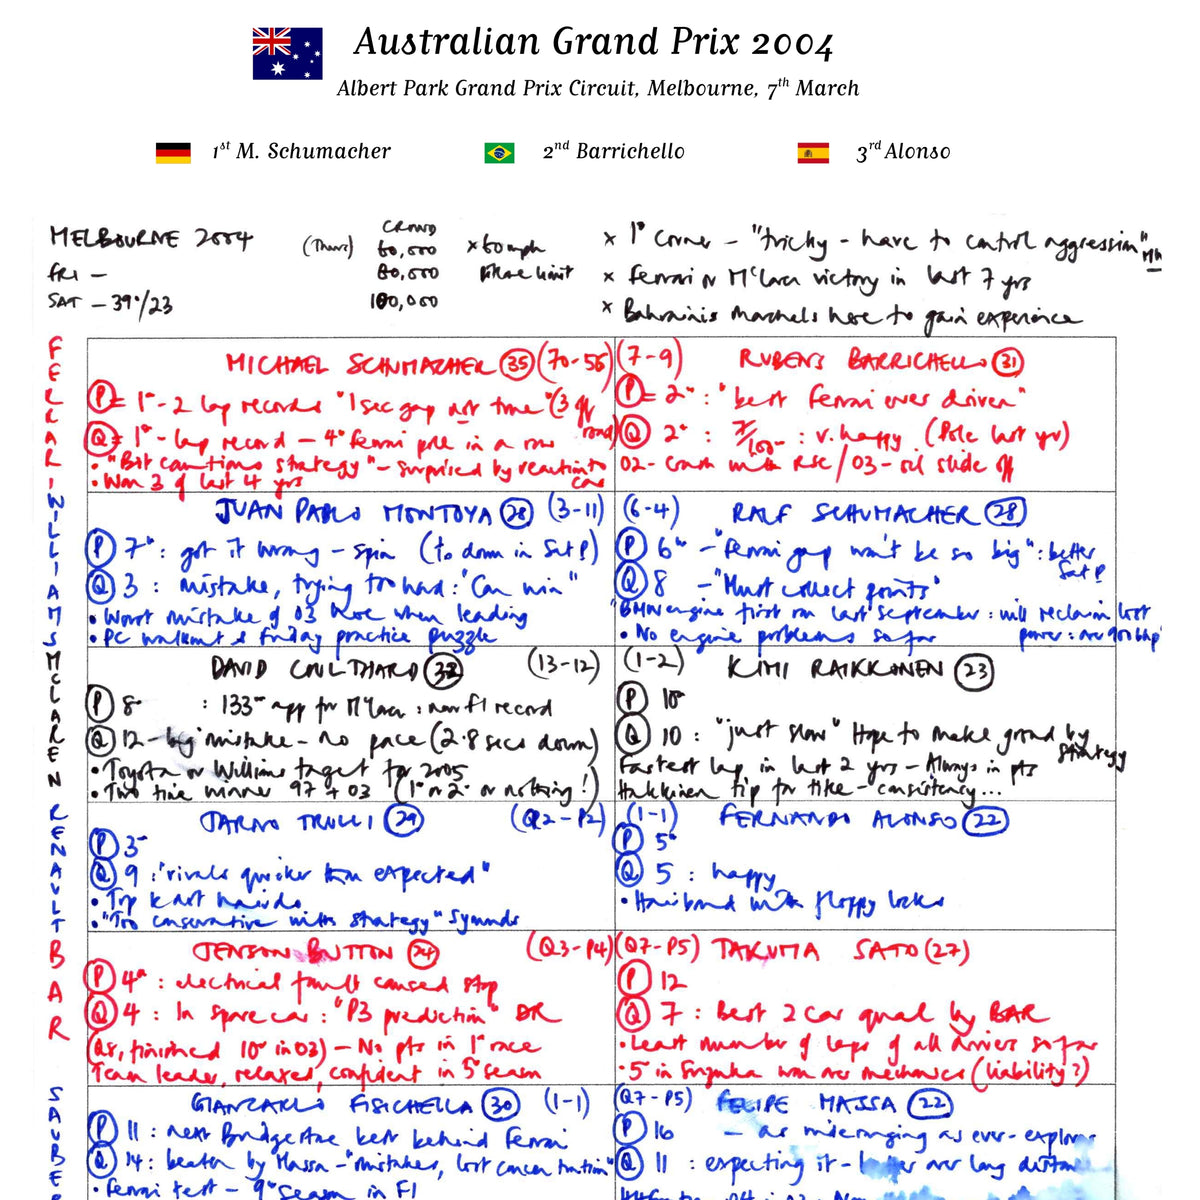 Australian Grand Prix 2004
Albert Park Grand Prix Circuit, Melbourne, 7th March
1st M. Schumacher 2nd Barrichello 3rd Alonso
MELBOURNE 2004 (Thurs) CROWD 60,000 x 60mph x 1° Corner - "tricky - have to control aggression" MH
FRI - 80,000 pitlane limit x Ferrari or M'Laren victory in last 7 yrs
SAT - 39°/23 100,000 x Bahrainis marshals here to gain experience
FERRARI
MICHAEL SCHUMACHER (35) (70-56)
(P)= 1° - 2 lap records "1 sec gap not true" (3 off road)
(Q)= 1° - lap record - 4° Ferrari pole in a row
• "Bit cautious strategy" - surprised by reaction to car
• Won 3 of last 4 yrs
(7-9) RUBENS BARRICHELLO (31)
(P)= 2° : "best Ferrari ever driven"
(Q) 2° : : v. happy (Pole last yr)
02 - crash with RSC / 03 - oil slide off
WILLIAMS
JUAN PABLO MONTOYA (28) (3-11)
(P) 7° : got it wrong - spin (to down in Sat P)
(Q) 3 : mistake, trying too hard : "Can win"
• Worst mistake of 03 here when leading
• PC walkout & Friday practice puzzle
(6-4) RALF SCHUMACHER (28)
(P) 6° - "Ferrari gap won't be so big" : better Sat P
(Q) 8 - "Must collect points"
"BMW engine first run last September : will reclaim lost
• No engine problems so far power : over 900 bhp"
McLAREN
DAVID COULTHARD (32) (13-12)
(P) 8° : 133rd app for M'Laren : new F1 record
(Q) 12 - big mistake - no pace (2.8 secs down)
• Toyota or Williams target for 2005
• Two time winner 97 + 03 (1° or 2° or nothing!)
(1-2) KIMI RAIKKONEN (23)
(P) 10°
(Q) 10 : "just slow" Hope to make ground by strategy
Fastest lap in last 2 yrs - Always in pts
Hakkinen tip for title - consistency...
RENAULT
JARNO TRULLI (29) (Q2-P2)
(P) 3°
(Q) 9 : "rivals quicker than expected"
• Top kart hairdo
• "Too conservative with strategy" Symonds
(1-1) FERNANDO ALONSO (22)
(P) 5°
(Q) 5 : happy
• Hairband with floppy locks
BAR
JENSON BUTTON (24) (Q3-P4)
(P) 4° : electrical fault caused stop
(Q) 4 : In spare car : "P3 prediction" DR
(Q8, finished 10° in 03) - No pts in 1° race
Team leader, relaxed, confident in 5° season
(Q7-P5) TAKUMA SATO (27)
(P) 12
(Q) 7 : Best 2 car qual by BAR
• Least number of laps of all drivers so far
• 5° in Suzuka won over mechanics (liability?)
SAUBER
GIANCARLO FISICHELLA (30) (1-1)
(P) 11 : next Bridgestone best behind Ferrari
(Q) 14 : beaten by Massa - "mistakes, lost concentration"
• Ferrari test - 9° season in F1
(Q7-P5) FELIPE MASSA (22)
(P) 16 - as wideranging as ever - explores
(Q) 11 : expecting it - better over long distance